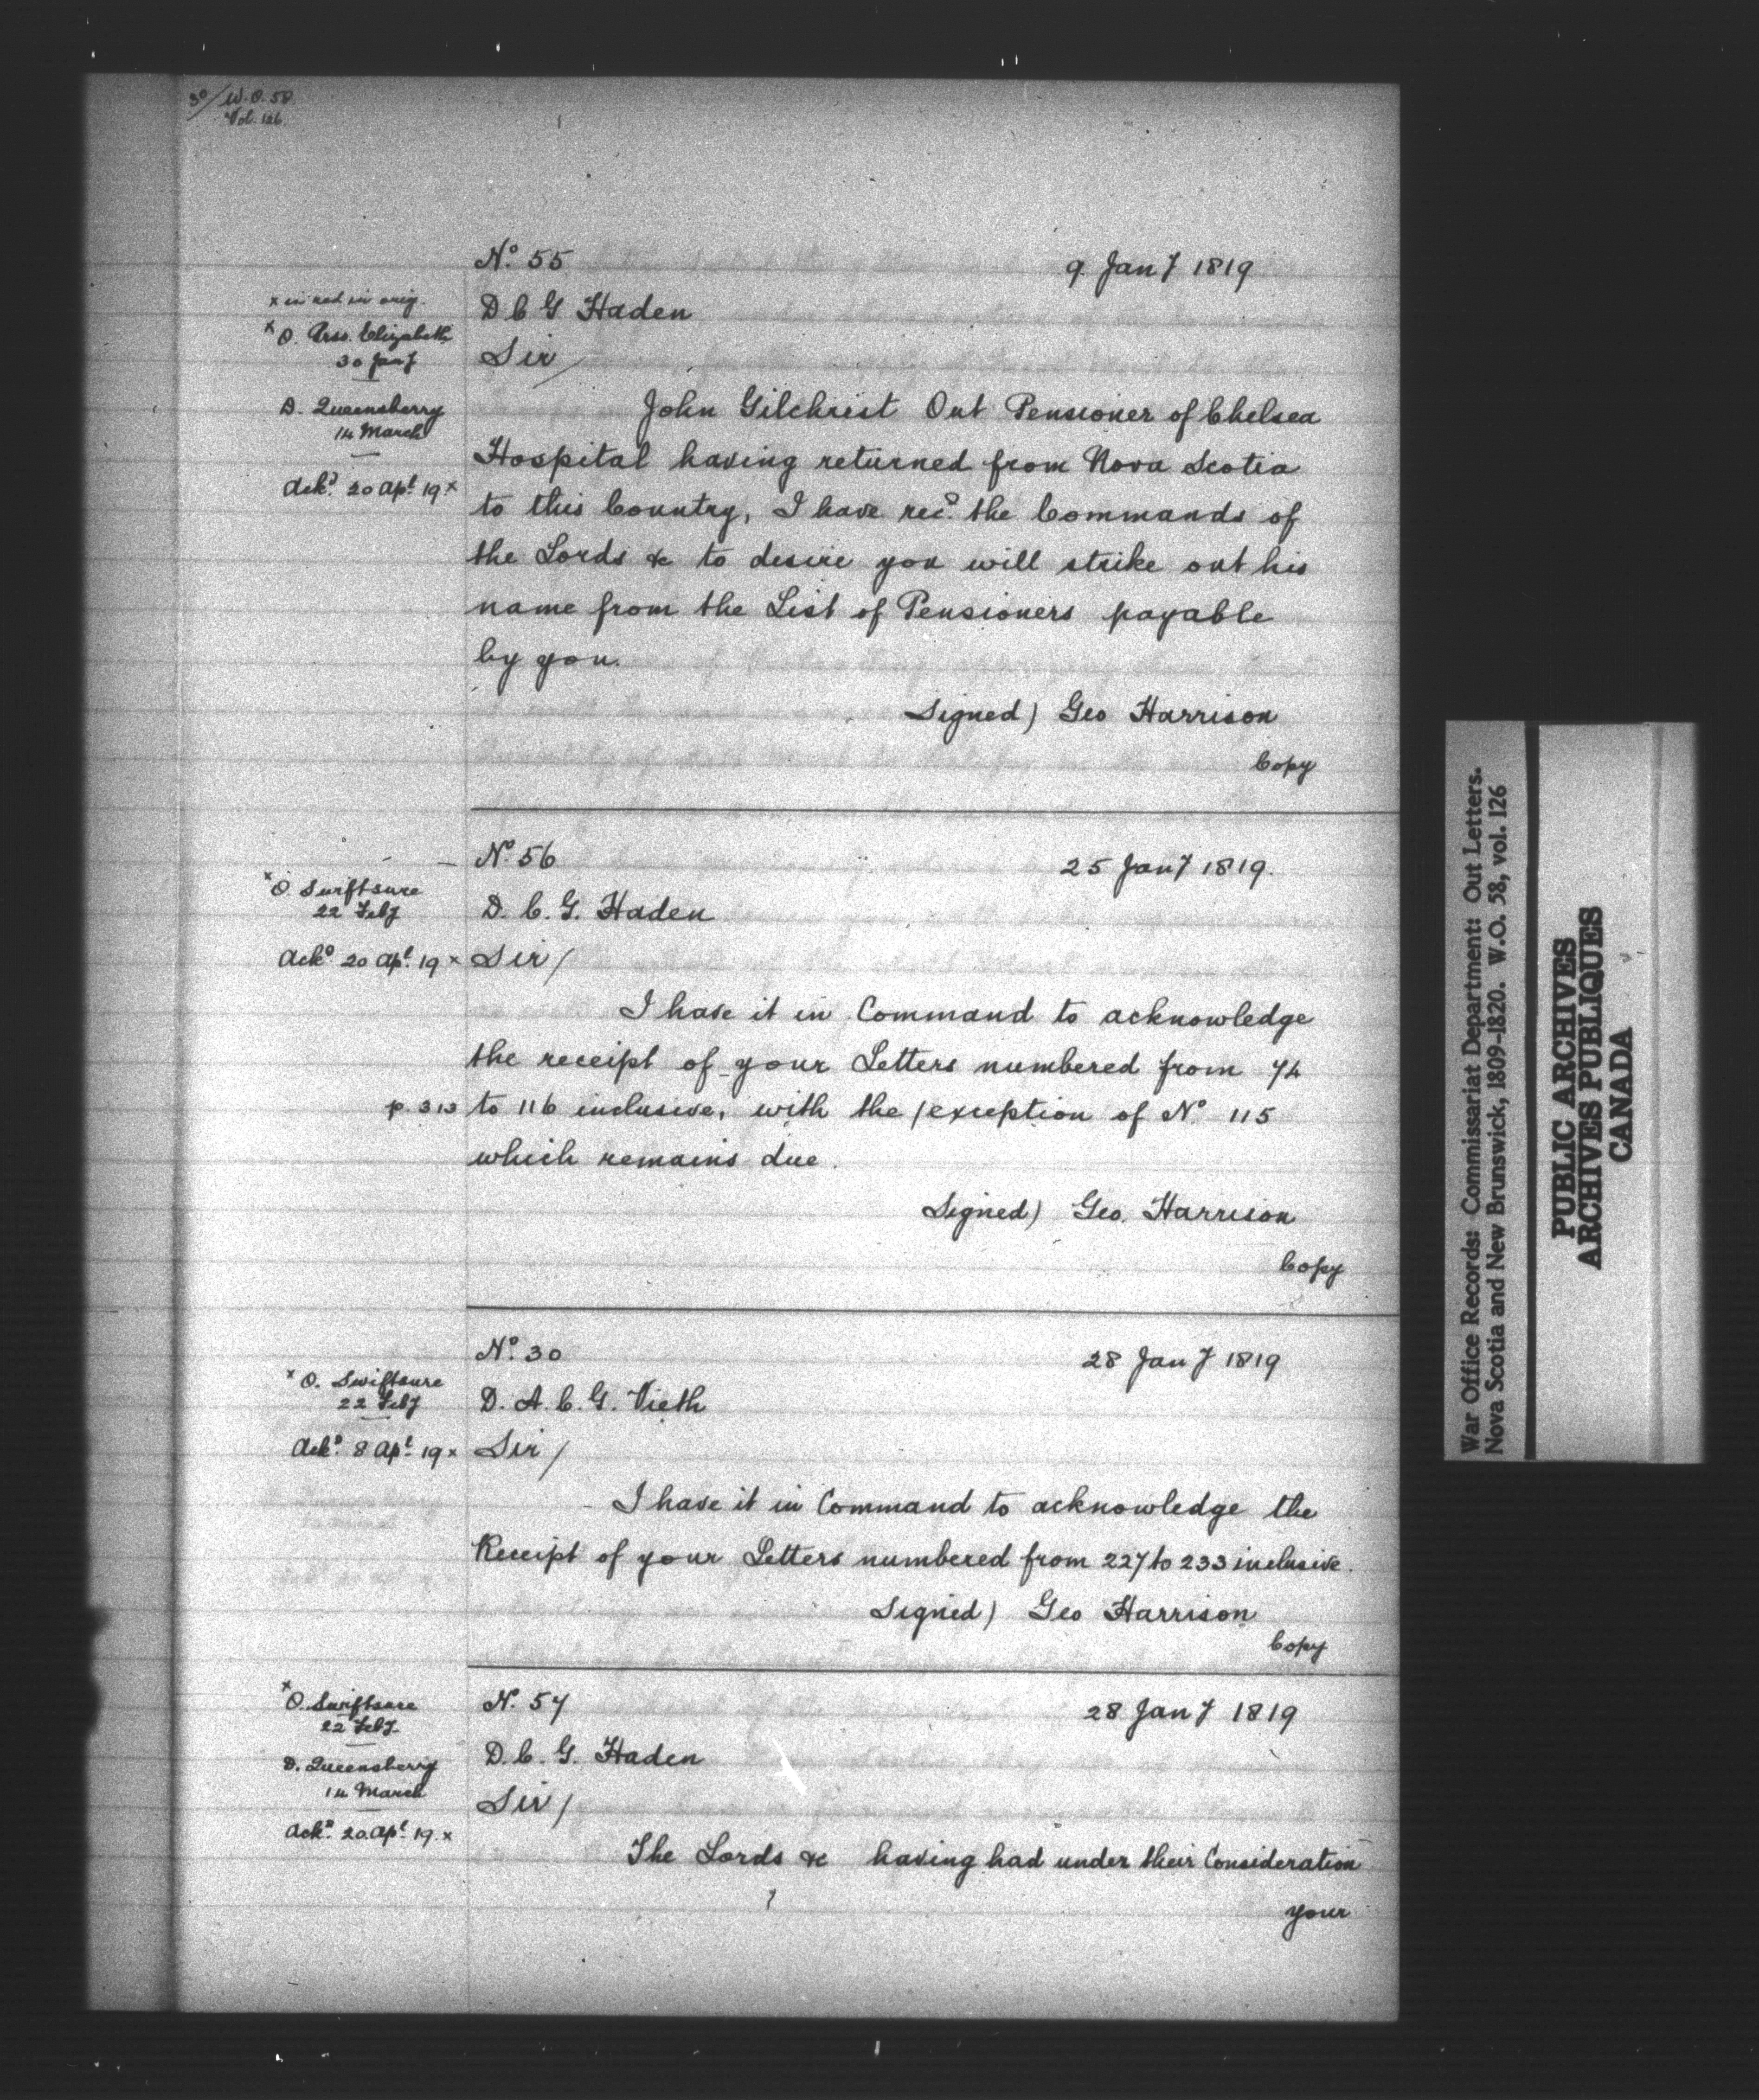 30/W.O. 58
Vol. 126
No. 55
9 Jany 1819
x in red in orig.
x O. Prss. Elizabeth
30 Jany
D. Queensberry
14 March
Ackd. 20 Apl. 19 x
D C G Haden
Sir/
John Gilchrist Out Pensioner of Chelsea
Hospital having returned from Nova Scotia
to this Country, I have recd. the Commands of
the Lords &c to desire you will strike out his
name from the List of Pensioners payable
by you.
Signed) Geo Harrison
Copy
No. 56
25 Jany 1819.
x O. Swiftsure
22 Feby
Ackd 20 Apl. 19 x
D. C. G. Haden
Sir/
I have it in Command to acknowledge
the receipt of your Letters numbered from 74
p. 313 to 116 inclusive, with the /exception of No. 115
which remains due.
Signed) Geo. Harrison
Copy
No. 30
28 Jany 1819
x O. Swiftsure
22 Feby
Ackd. 8 Apl. 19 x
D. A. C. G. Vieth
Sir/
I have it in Command to acknowledge the
Receipt of your Letters numbered from 227 to 233 inclusive.
Signed) Geo Harrison
Copy
x O. Swiftsure
22 Feby.
D. Queensberry
14 March
Ackd. 20 Apl. 19. x
No. 57
28 Jany 1819
D. C. G. Haden
Sir/
The Lords &c having had under their Consideration
your
War Office Records: Commissariat Department: Out Letters.
Nova Scotia and New Brunswick, 1809-1820. W.O. 58, vol. 126
PUBLIC ARCHIVES
ARCHIVES PUBLIQUES
CANADA